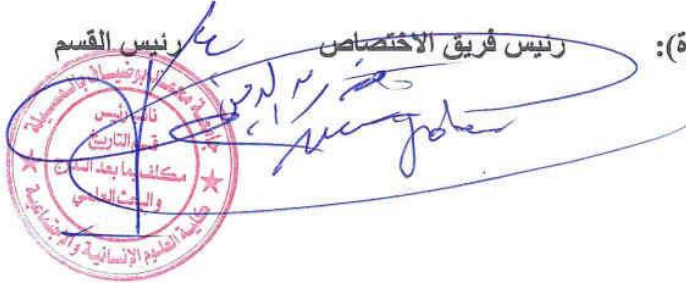 ة): رئيس فريق الاختصاص رئيس القسم
جامعة محمد بوضياف بالمسيلة
نائب رئيس
قسم التاريخ
مكلف بما بعد التدرج
والبحث العلمي
كلية العلوم الإنسانية والإجتماعية